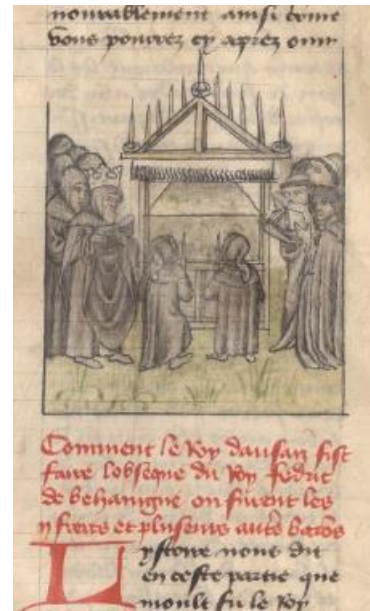 nourablement ainsi come
vous pourrez cy aprez ouir
Comment le Roy daussay fist
faire lobseque du Roy fedric
de behaingne ou furent les
ij freres et pluseurs autres barons
Lystoire nous dit
en ceste partie que
moult fu le Roy